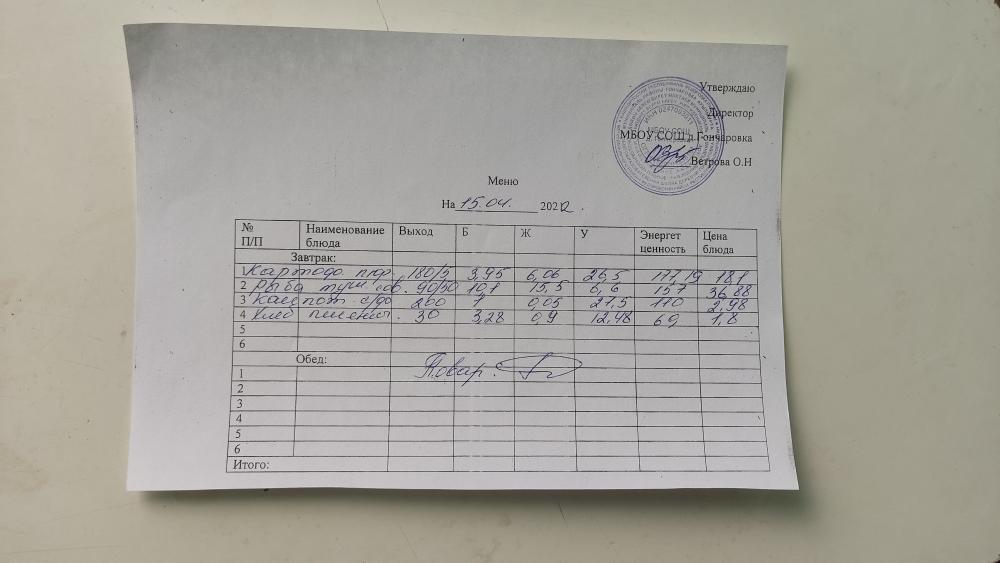 Утверждаю
Директор
МБОУ СОШ д.Гончаровка
Ветрова О.Н
Меню
На 15.04. 2022.
№ П/П Наименование блюда Выход Б Ж У Энергет ценность Цена блюда
Завтрак:
Картофо пюр. 180/5 3,95 6,06 26,5 177,19 18,1
2 Рыба туш. с ов. 90/50 10,1 15,5 6,6 157 36,88
3 260 1 0,05 27,5 110 2,98
4 Хлеб пшенич. 30 3,28 0,9 12,48 69 1,8
5
6
Обед:
1 Повар:
2
3
4
5
6
Итого: